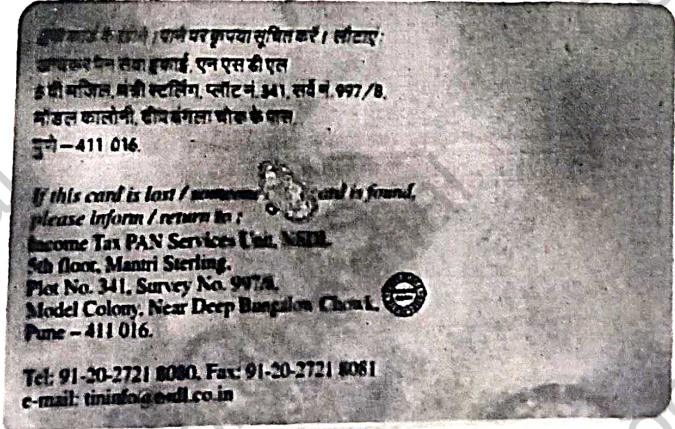 इस कार्ड के खोने / पाने पर कृपया सूचित करें। लौटाएं:
आयकर पैन सेवा इकाई, एन एस डी एल
5 वी मंजिल, मंत्री स्टर्लिंग, प्लॉट नं. 341, सर्वे नं. 997/8,
मॉडल कालोनी, दीप बंगला चौक के पास,
पुणे – 411 016.
If this card is lost / someone card is found,
please inform / return to :
Income Tax PAN Services Unit, NSDL
5th floor, Mantri Sterling,
Plot No. 341, Survey No. 997/8,
Model Colony, Near Deep Bungalow Chowk,
Pune – 411 016.
Tel: 91-20-2721 8080, Fax: 91-20-2721 8081
e-mail: tininfo@nsdl.co.in